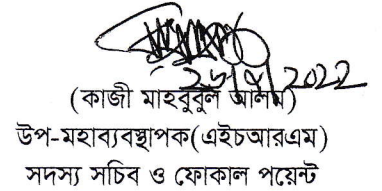 ২৮/৭/2022
(কাজী মাহবুবুল আলম)
উপ-মহাব্যবস্থাপক(এইচআরএম)
সদস্য সচিব ও ফোকাল পয়েন্ট